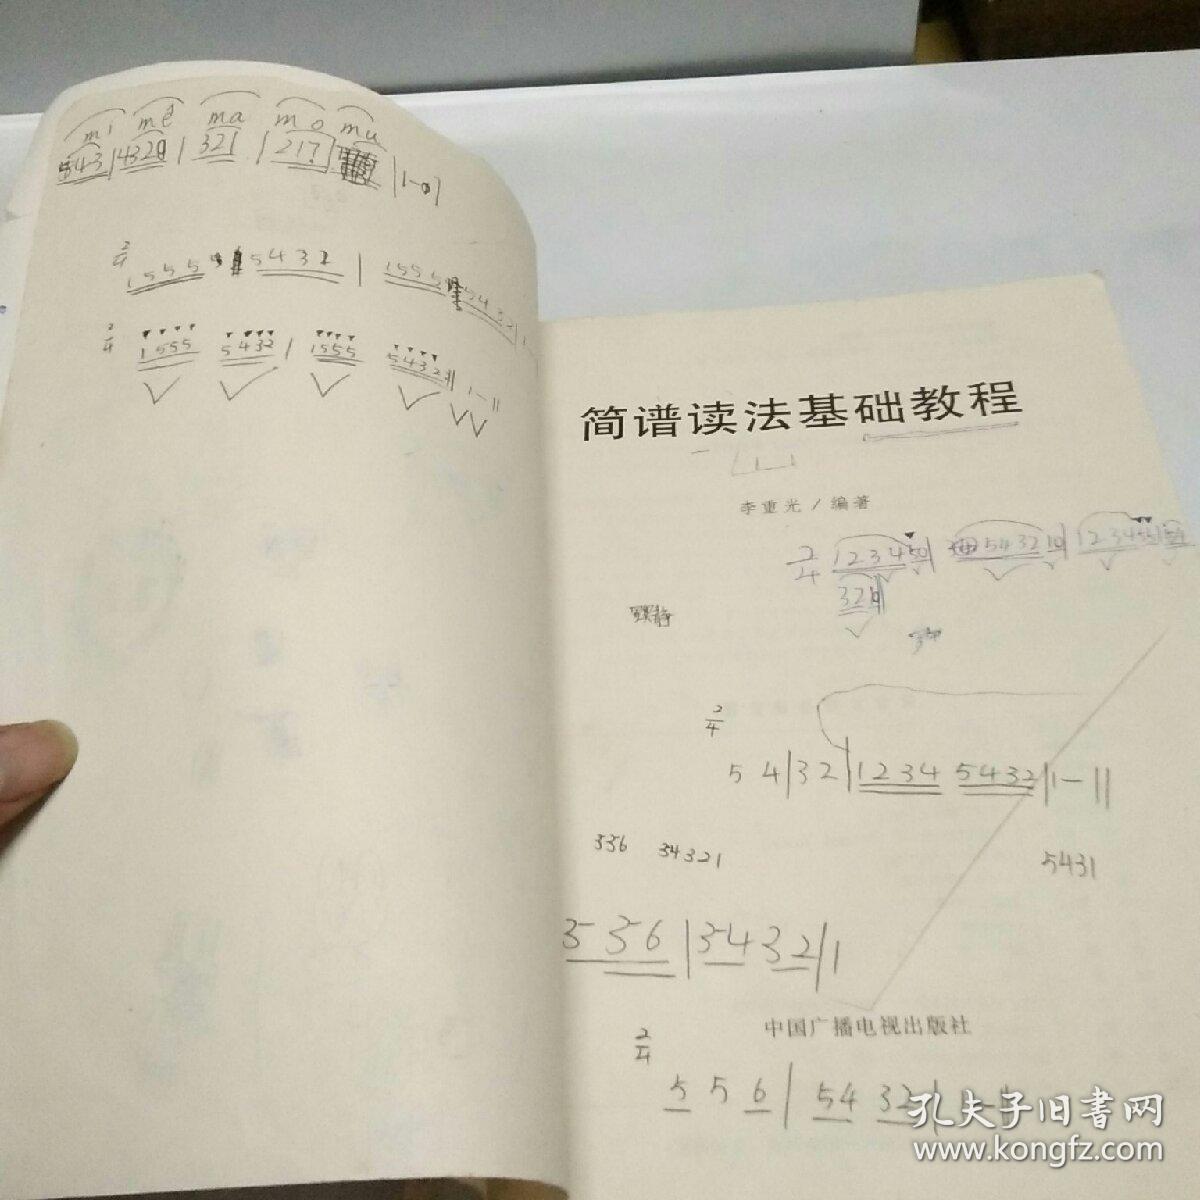 mi mē ma mo mu
543|4320|321|217
|1-0
2/4 1555 5432 | 1555 5432
2/4 1555 5432 | 1555 5432 || 1-||
简谱读法基础教程
李重光 / 编著
2/4 1234 50| 5432 10| 1234 55|54
321
2/4
5 4|32|1234 5432|1-||
536 54321
5431
5 56|5432|1
中国广播电视出版社
2/4
5 5 6|54 32|
孔夫子旧书网
www.kongfz.com